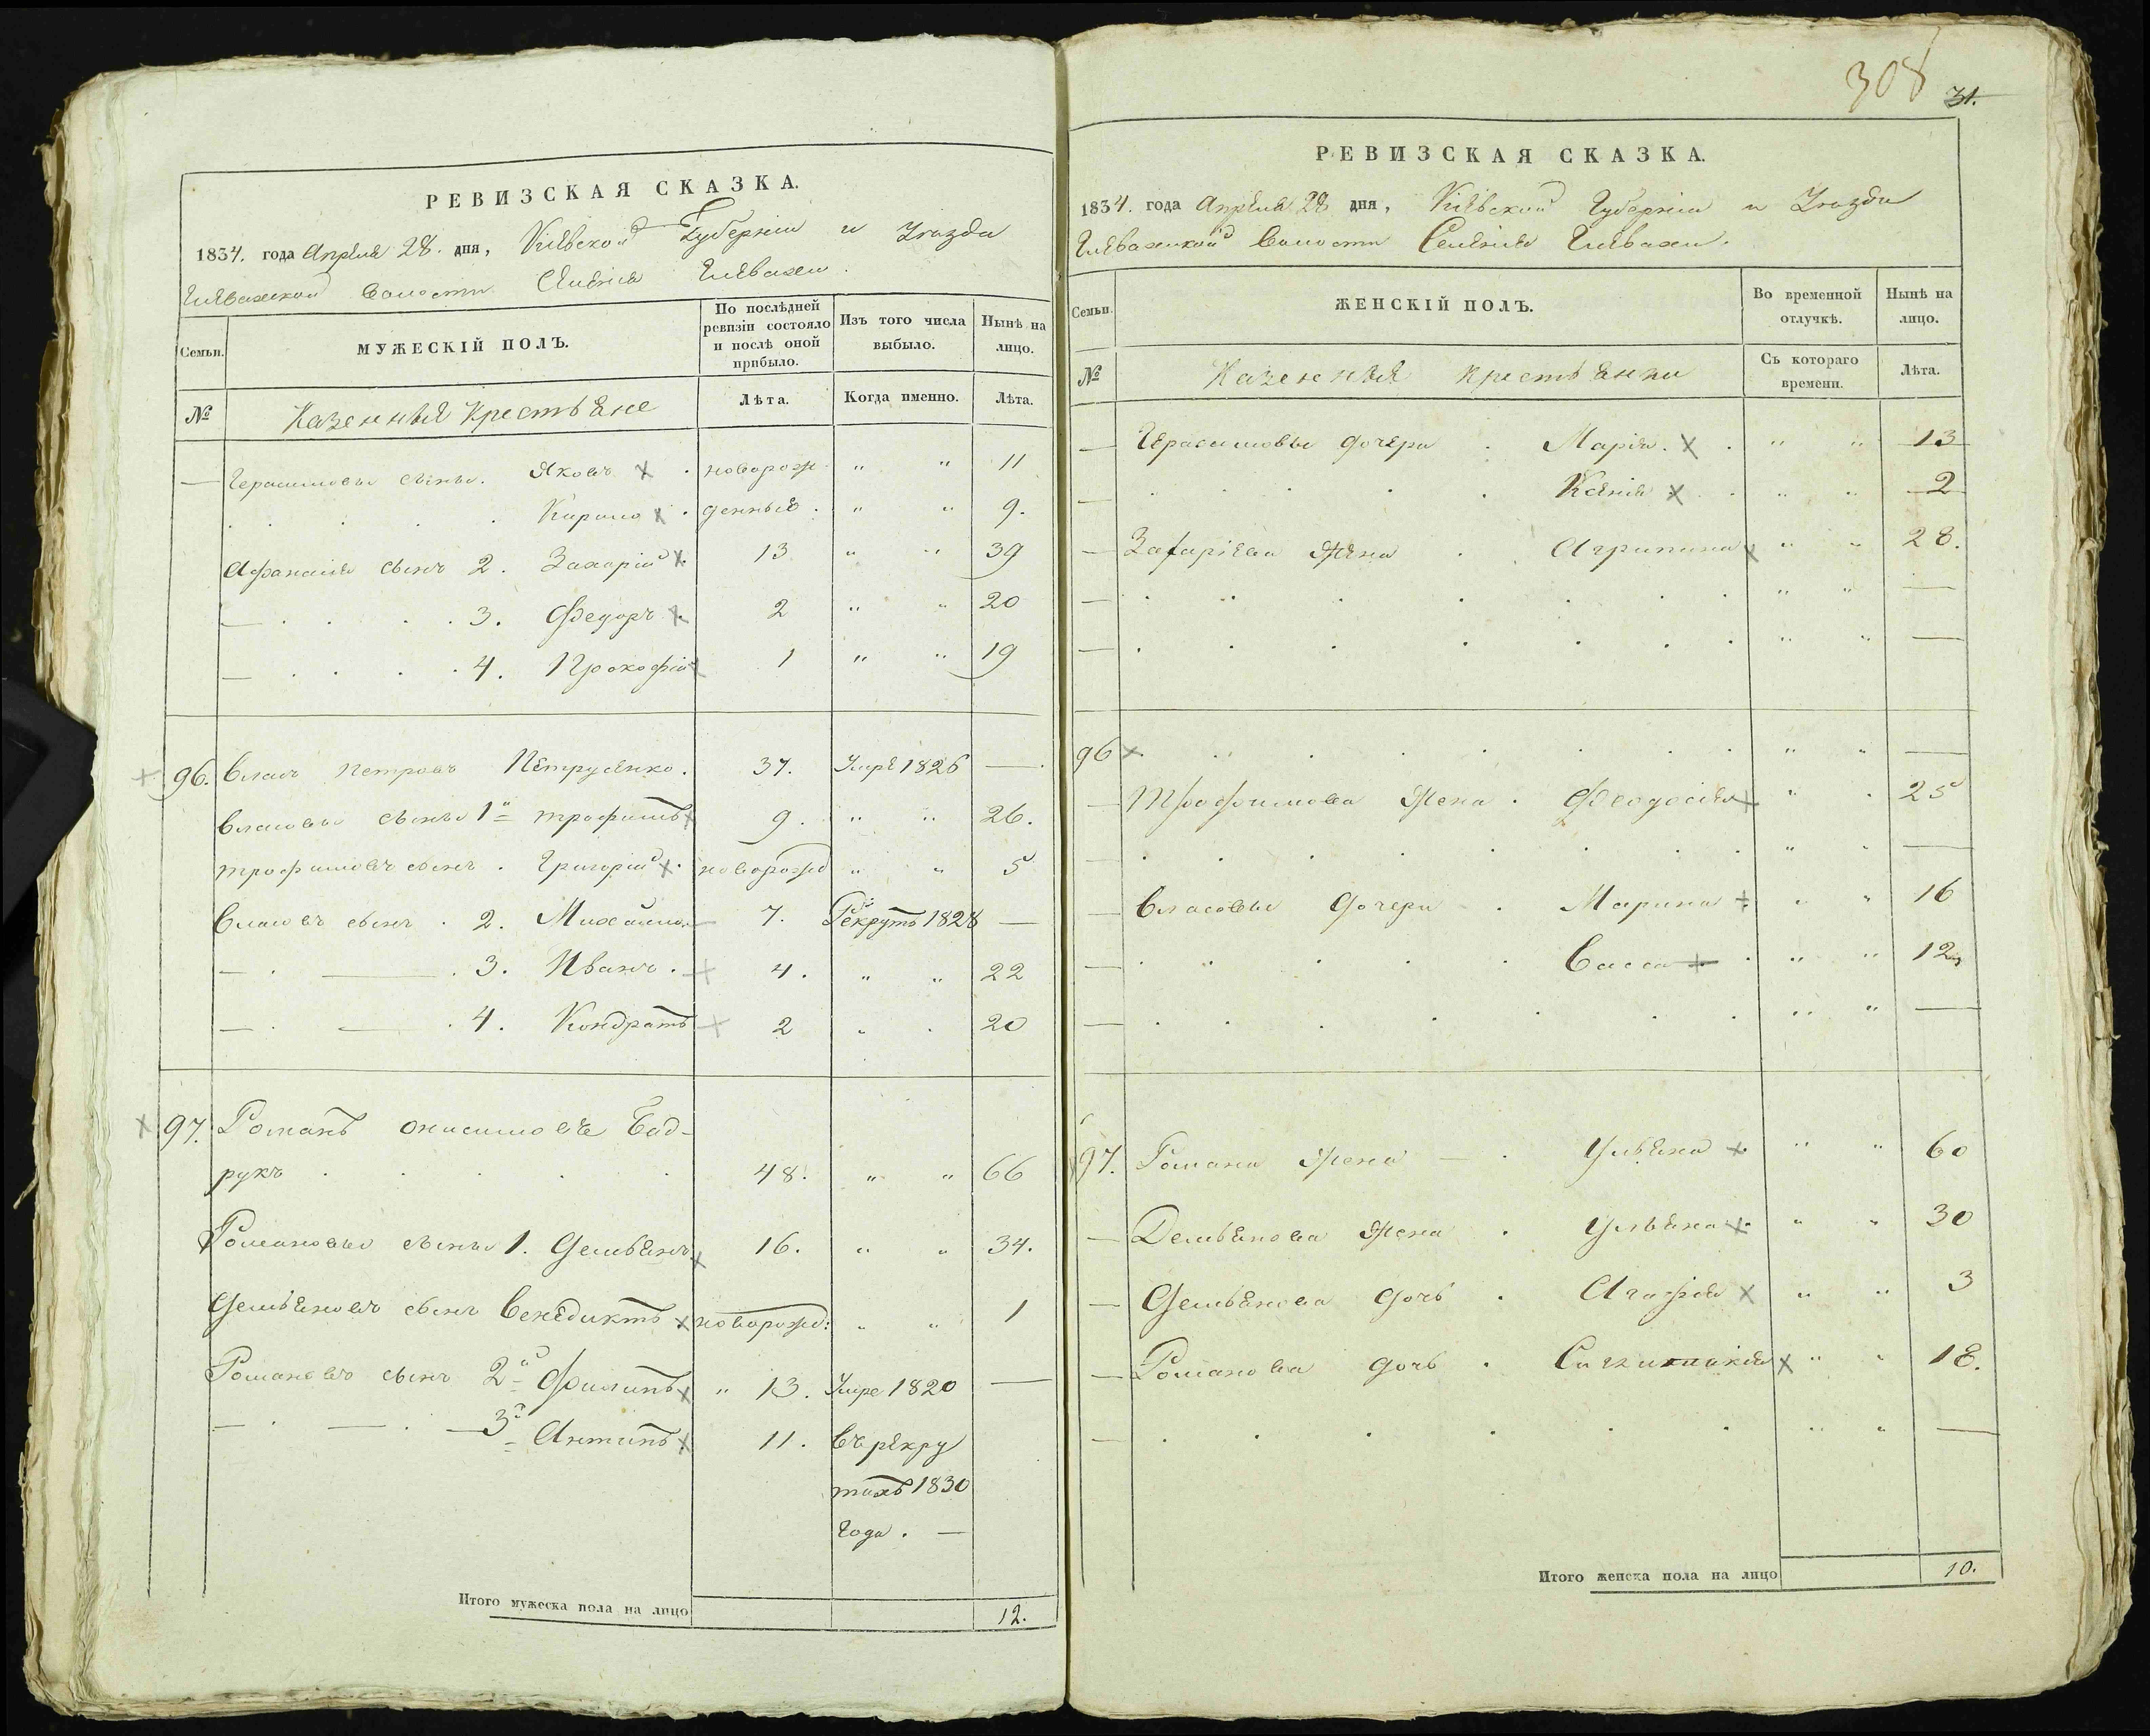 РЕВИЗСКАЯ СКАЗКА.
1834. года Апреля 28. дня, Кіевской Губерніи и Уѣзда
Глеваской Волости Селенія Глевахи.
Семьи.
МУЖЕСКІЙ ПОЛЪ.
По послѣдней ревизіи состояло и послѣ оной прибыло.
Изъ того числа выбыло.
Нынѣ на лицо.
№
Казенные Крестьяне
Лѣта.
Когда именно.
Лѣта.
— Герасимовы сыны. Яковъ х новорож- " " 11
Кирило х денные. " " 9.
Афанасія сынъ 2. Захарій х 13 " " 39
— 3. Федоръ х 2 " " 20
— 4. Прокофій х 1 " " 19
х 96. Власъ Петровъ Петрусенко. 37. Умре 1826 —
Власовы сыны 1й Трофимъ х 9. " " 26.
Трофимовъ сынъ. Григорій х новорожд " " 5
Власовъ сынъ 2. Михайло 7. Рекрутъ 1828 —
— 3. Иванъ. х 4. " " 22
— 4. Кондратъ х 2 " " 20
х 97. Романъ Онисимовъ Бад-
рукъ 48. " " 66
Романовы сыны 1. Демьянъ х 16. " " 34.
Демьяновъ сынъ Венедиктъ х новорожд: " " 1
Романовъ сынъ 2й Филипъ х " 13. Умре 1820 —
— 3й Антипъ х 11. Въ рекру
тахъ 1830
года. —
Итого мужеска пола на лицо 12.
308
31.
РЕВИЗСКАЯ СКАЗКА.
1834. года Апреля 28 дня, Кіевской Губерніи и Уѣзда
Глеваской Волости Селенія Глевахи.
Семьи.
ЖЕНСКІЙ ПОЛЪ.
Во временной отлучкѣ.
Нынѣ на лицо.
№
Казенные крестьянки
Съ котораго времени.
Лѣта.
— Герасимовы дочери Марія. х " " 13
— Ксенія х " " 2
— Захаріева жена Агрипина х " " 28.
— " " —
— " " —
96 х " " —
— Трофимова жена. Феодосія х " " 25
— " " —
— Власовы дочери Марина х " " 16
— Васса х " " 12
— " " —
97. Романа жена — Ульяна х " " 60
— Демьянова жена Ульяна х " " 30
— Демьянова дочь Агафія х " " 3
— Романова дочь х " " 18.
— " " —
Итого женска пола на лицо 10.